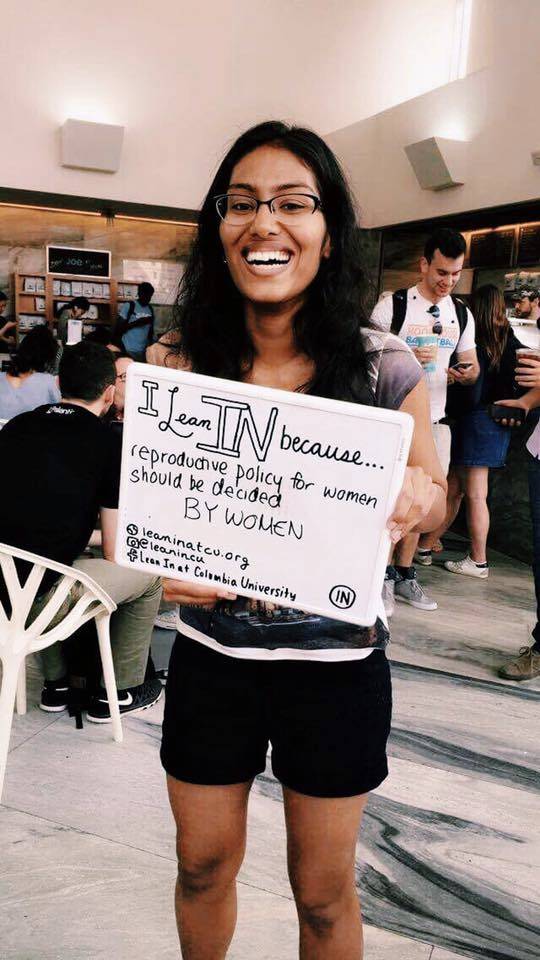 Joe
I Lean IN because...
reproductive policy for women
should be decided
BY WOMEN
leaninatcu.org
@leanincu
Lean In at Columbia University
IN